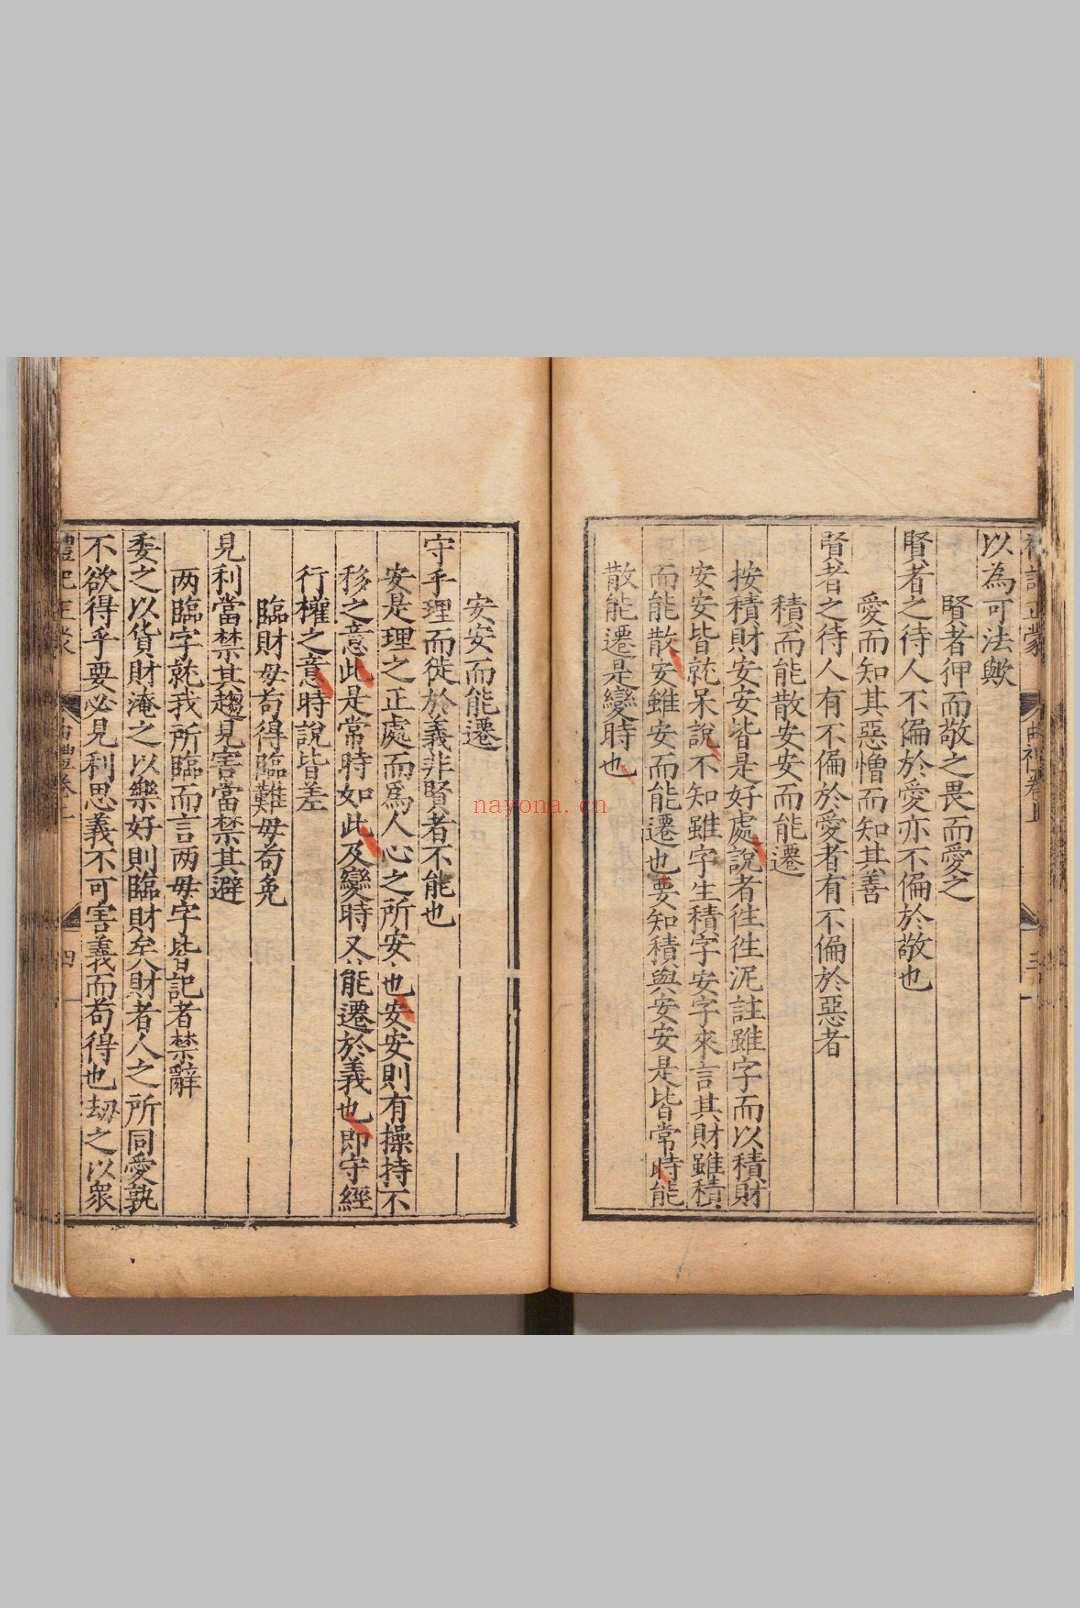 以為可法歟
賢者狎而敬之畏而愛之
賢者之待人不偏於愛亦不偏於敬也
愛而知其惡憎而知其善
賢者之待人有不偏於愛者有不偏於惡者
積而能散安安而能遷
按積財安安皆是好處說者徃徃泥註雖字而以積財
安安皆就呆說不知雖字生積字安字來言其財雖積
而能散安雖安而能遷也要知積與安安是皆常時能
散能遷是變時也
安安而能遷
守乎理而徙於義非賢者不能也
安是理之正處而爲人心之所安也安安則有操持不
移之意此是常時如此及變時又能遷於義也即守經
行權之意時說皆差
臨財毋苟得臨難毋苟免
見利當禁其趨見害當禁其避
两臨字就我所臨而言两毋字皆記者禁辭
委之以貨財淹之以樂好則臨財矣財者人之所同愛孰
不欲得乎要必見利思義不可害義而苟得也劫之以衆
nayona.cn